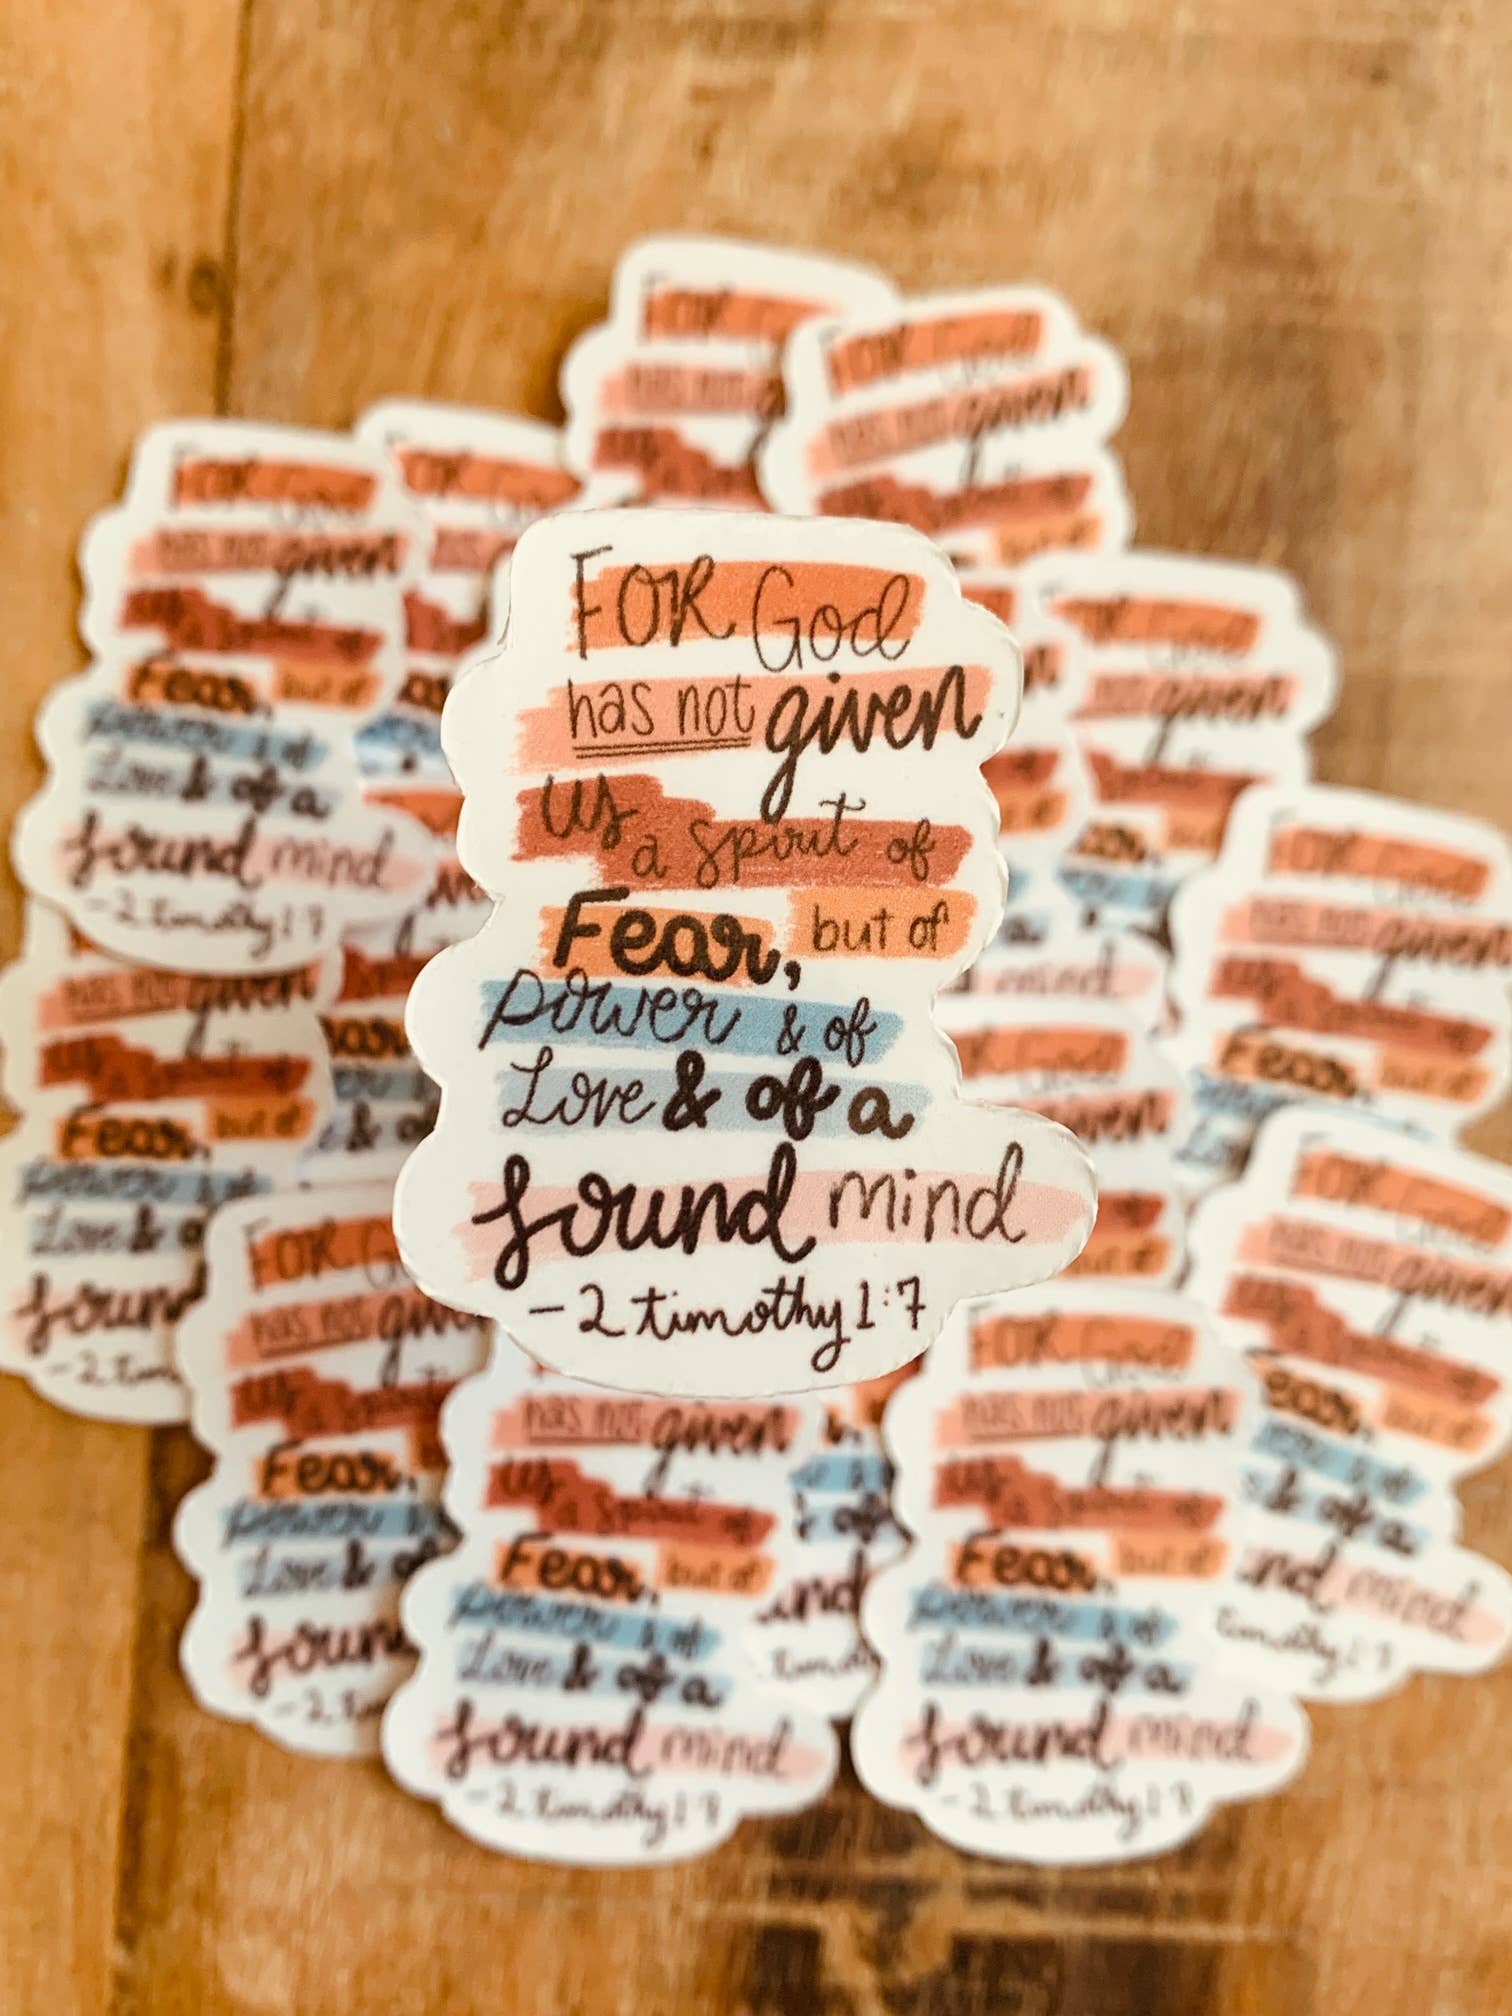 For God
has not given
us a spirit of
Fear, but of
power & of
Love & of a
sound mind
- 2 timothy 1:7